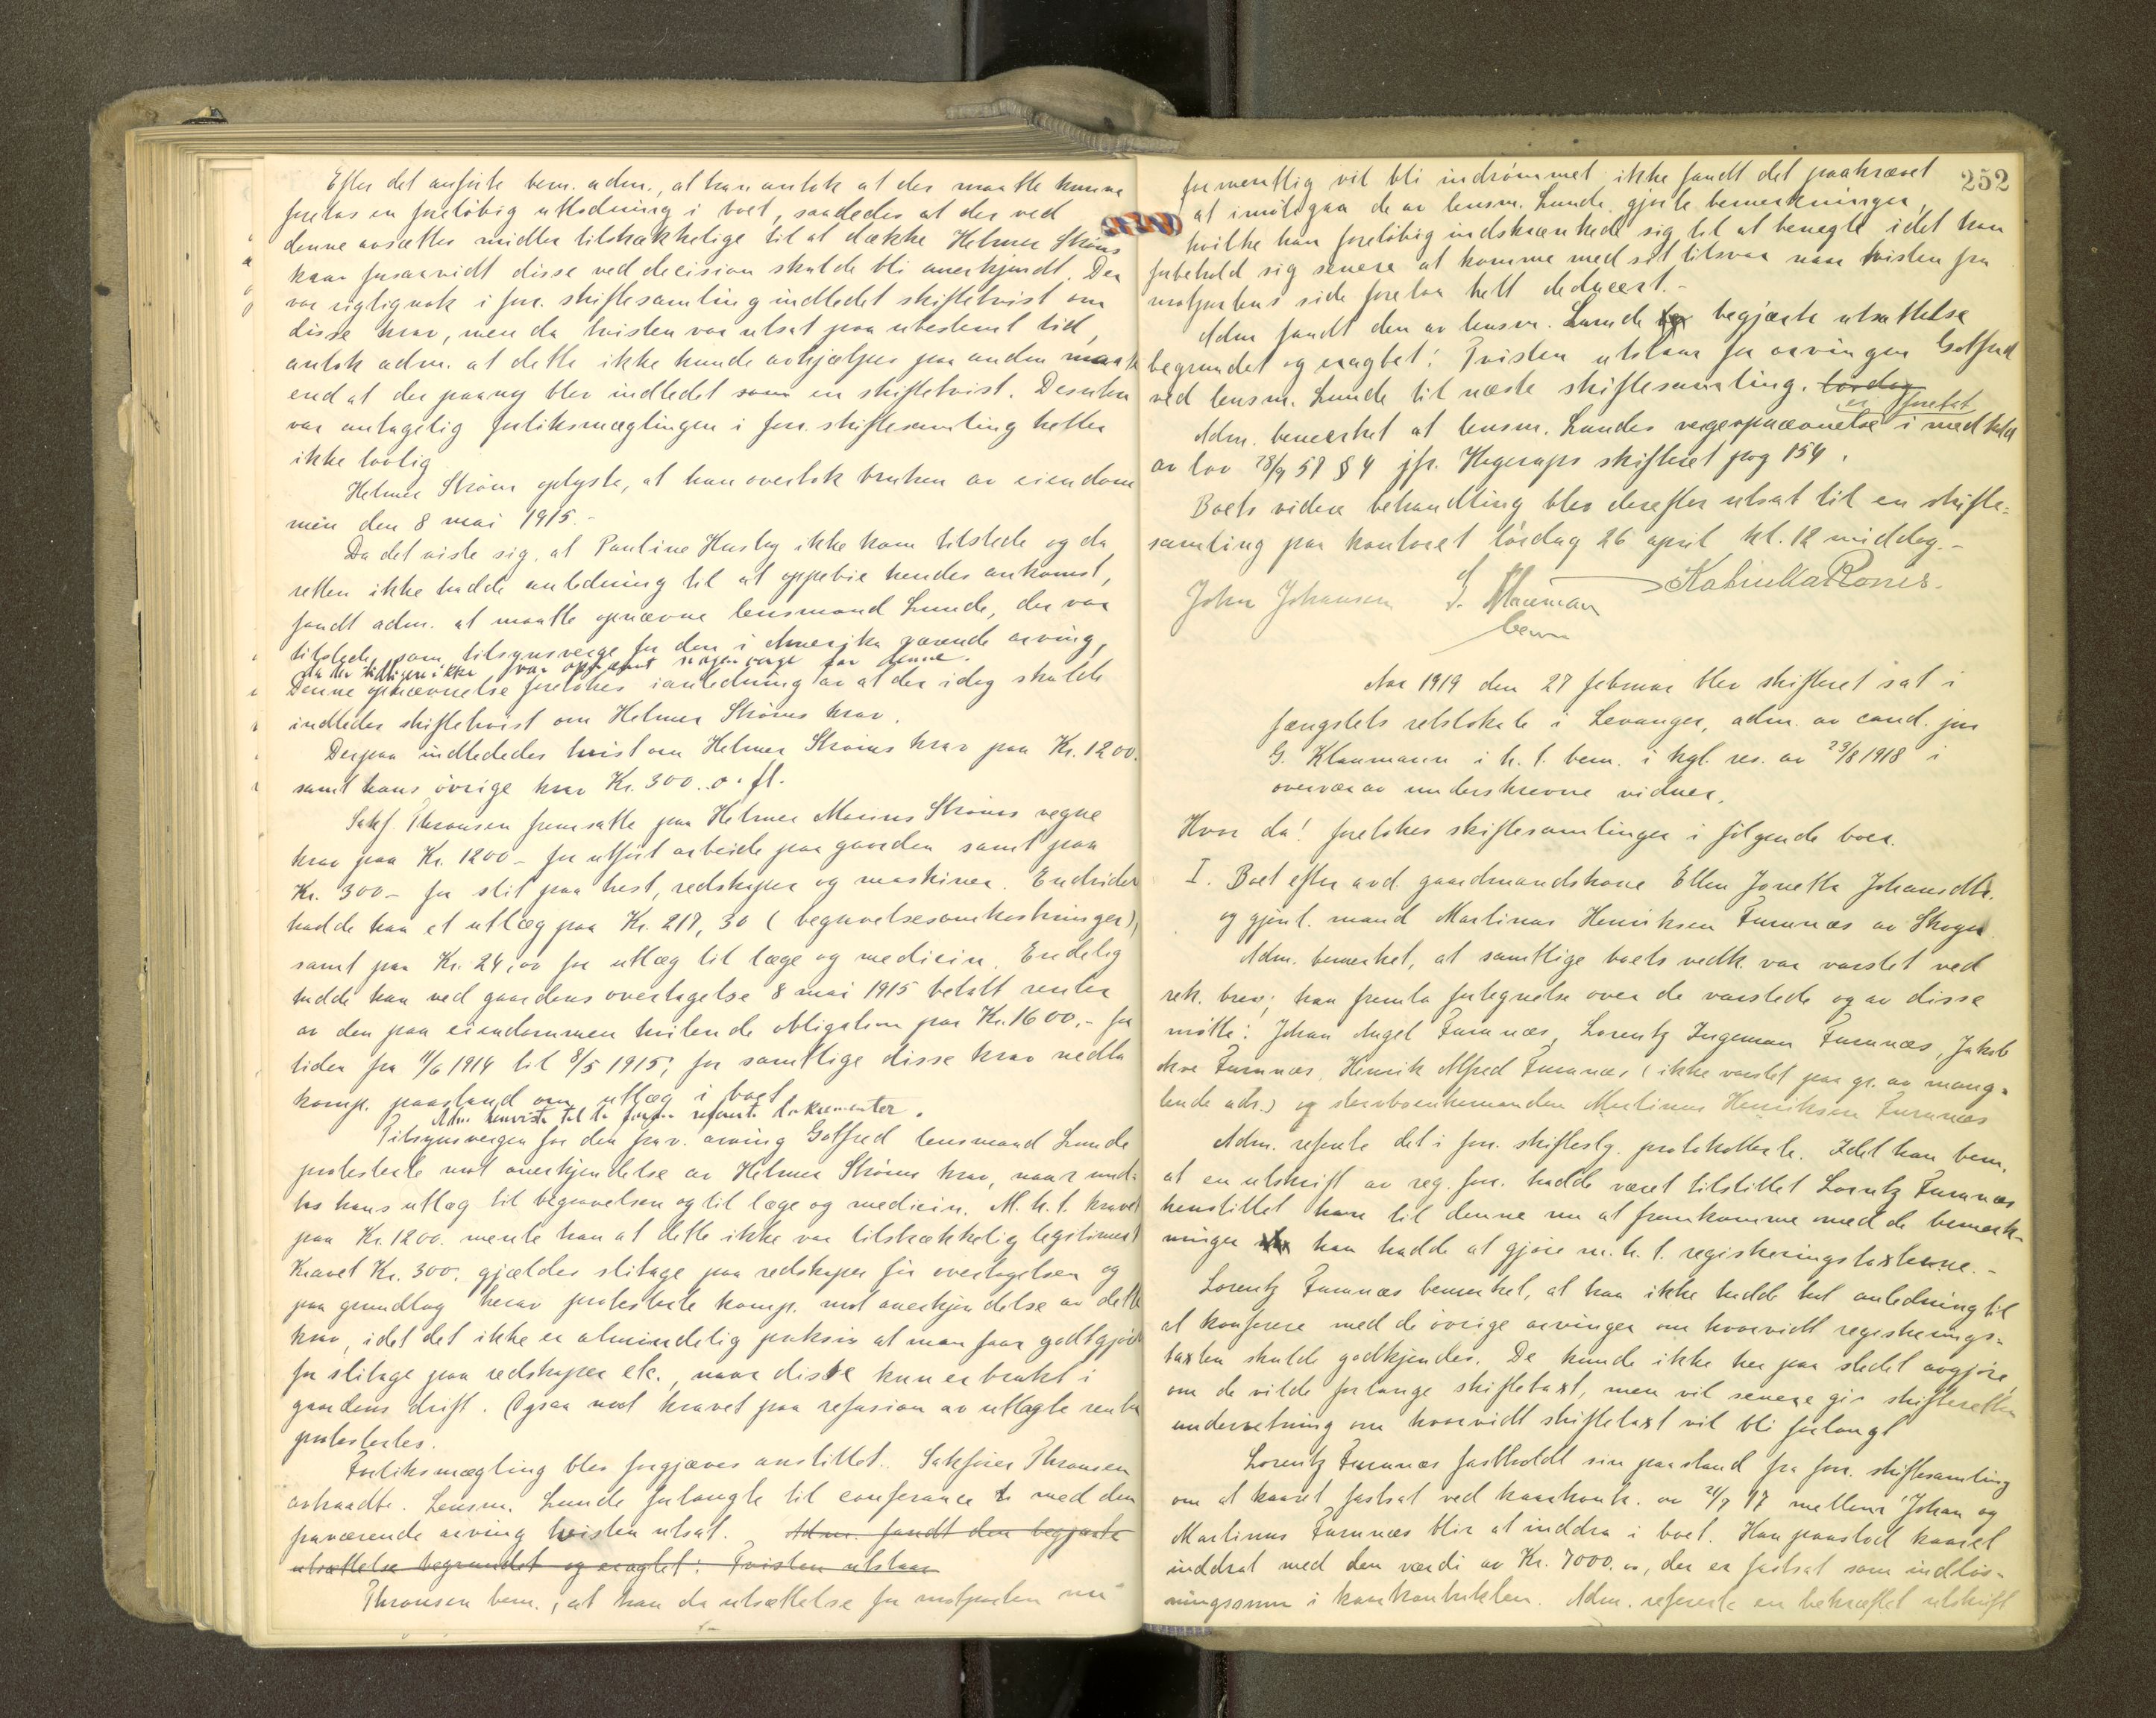 Efter det anførte bem. adm., at han antok at der maatte kunne
foretas en foreløbig utlodning i boet, saaledes at der ved
denne avsættes midler tilstrækkelige til at dække Helmer Strøms
krav forsaavidt disse ved decision skulde bli anerkjendt. Der
var rigtignok i forr. skiftesamling indledet skiftetvist om
disse krav, men da tvisten var utsat paa ubestemt tid,
antok adm. at dette ikke kunde avhjælpes paa anden maate
end at der paany blev indledet som en skiftetvist. Desuten
var antagelig forliksmæglingen i forr. skiftesamling heller
ikke lovlig
Helmer Strøm oplyste, at han overtok bruken av eiendom
men den 8 mai 1915.-
Da det viste sig, at Pauline Husby ikke kom tilstede og da
retten ikke hadde anledning til at oppebie hendes ankomst,
fandt adm. at maatte opnævne lensmand Lunde, der var
tilstede, som tilsynsverge for den i Amerika værende arving,
da der tidligere ikke var opnævnt nogen verge for denne.
Denne opnævnelse foretokes i anledning av at der idag skulde
indledes skiftetvist om Helmer Strøms krav.
Derpaa indlededes tvist om Helmer Strøms krav paa Kr. 1200.
samt hans øvrige krav Kr. 300.- o. fl.
Sakf. Thronsen fremsatte paa Helmer Marius Strøms vegne
krav paa Kr. 1200- for utført arbeide paa gaarden samt paa
Kr. 300- for slit paa hest, redskaper og maskiner. Endvider
hadde han et utlæg paa Kr. 217,30 (begravelsesomkostninger),
samt paa Kr. 24,00 for utlæg til læge og medicin. Endelig
hadde han ved gaardens overtagelse 8 mai 1915 betalt renter
av den paa eiendommen hvilende obligation paa Kr. 1600.- for
tiden fra 11/6 1914 til 8/5 1915; for samtlige disse krav nedla
komp. paastand om utlæg i boet
Adm. henviste til de forhen refererte dokumenter.
Tilsynsvergen for den frav. arving Gotfred lensmand Lunde
protesterte mot anerkjendelse av Helmer Strøms krav, naar und-
tas hans utlæg til begravelsen og til læge og medicin. M. h. t. kravet
paa Kr. 1200. mente han at dette ikke var tilstrækkelig legitimert
Kravet Kr. 300. gjælder slitage paa redskaper før overtagelsen og
paa grundlag herav protesterte komp. mot anerkjendelse av dette
krav, idet det ikke er almindelig praksis at man faar godtgjort
for slitage paa redskaper etc., naar disse kun er brukt i
gaardens drift. Ogsaa mot kravet paa refusion av utlagte renter
protestertes.
Forliksmægling blev forgjæves anstillet. Sakfører Thronsen
avtraadte. Lensm. Lunde forlangte til conferance med den
fraværende arving tvisten utsat. Adm. fandt den begjærte
utsættelse begrundet og eragtet: Tvisten utstaar
Thronsen bem., at han da utsættelse for motparten nu
252
formentlig vil bli indrømmet ikke fandt det paakrævet
at imøtegaa de av lensm. Lunde gjorte bemerkninger,
hvilke han foreløbig indskrænkede sig til at benegte idet han
forbeholdt sig senere at komme med sit tilsvar naar tvisten fra
motpartens side forelaa helt deducert.-
Adm fandt den av lensm. Lunde begjærte utsættelse
begrundet og eragtet: Tvisten utstaar for arvingen Gotfred
ved lensm. Lunde til næste skiftesamling. lørdag
Adm. bemerket at lensm. Lundes vergeopnævnelse er foretat i medhold
av lov 28/9 57 § 4 jfr. Hagerups skifteret pag 154.
Boets videre behandling blev derefter utsat til en skifte-
samling paa kontoret lørdag 26 april kl. 12 middag.-
John Johansen G. Klaumann
Aar 1919 den 27 februar blev skifteret sat i
fængslets retslokale i Levanger, adm. av cand. jur
G. Klaumann i h. t. bem. i kgl. res. av 23/8 1918 i
overvær av underskrevne vidner.
Hvor da! foretokes skiftesamlinger i følgende boer.
I. Boet efter avd. gaardmandskone Ellen Jonetta Johansdtr.
og gjenl. mand Martinus Henriksen Furunæs av Skogn
Adm. bemerket, at samtlige boets vedk. var varslet ved
rek. brev; han fremla fortegnelse over de varslede og av disse
møtte: Johan Angel Furunæs, Lorentz Ingeman Furunæs, Jakob
Furunæs, Henrik Alfred Furunæs (ikke varslet paa gr. av mang-
lende adr.) og stervboenkemanden Martinus Henriksen Furunæs
Adm. refererte det i forr. skiftesg. protokollerte. Idet han bem.
at en utskrift av reg. forr. hadde været tilstillet Lorentz Furunæs
henstillet han til denne nu at fremkomme med de bemerk-
ninger han hadde at gjøre m. h. t. registreringstaxterne.-
Lorentz Furunæs bemerket, at han ikke hadde hat anledning til
at konferere med de øvrige arvinger om hvorvidt registrerings-
taxten skulde godkjendes. De kunde ikke her paa stedet avgjøre,
om de vilde forlange skiftetaxt, men vil senere gi skifteretten
underretning om hvorvidt skiftetaxt vil bli forlangt
Lorentz Furunæs fastholdt sin paastand fra forr. skiftesamling
om at kaaret fastsat ved kaarkontr. av 21/7 17 mellem Johan og
Martinus Furunæs blir at inddra i boet. Han paastod kaaret
inddrat med den værdi av Kr. 7000.00, der er fastsat som indløs-
ningssum i kaarkontrakten. Adm. refererte en bekræftet utskrift